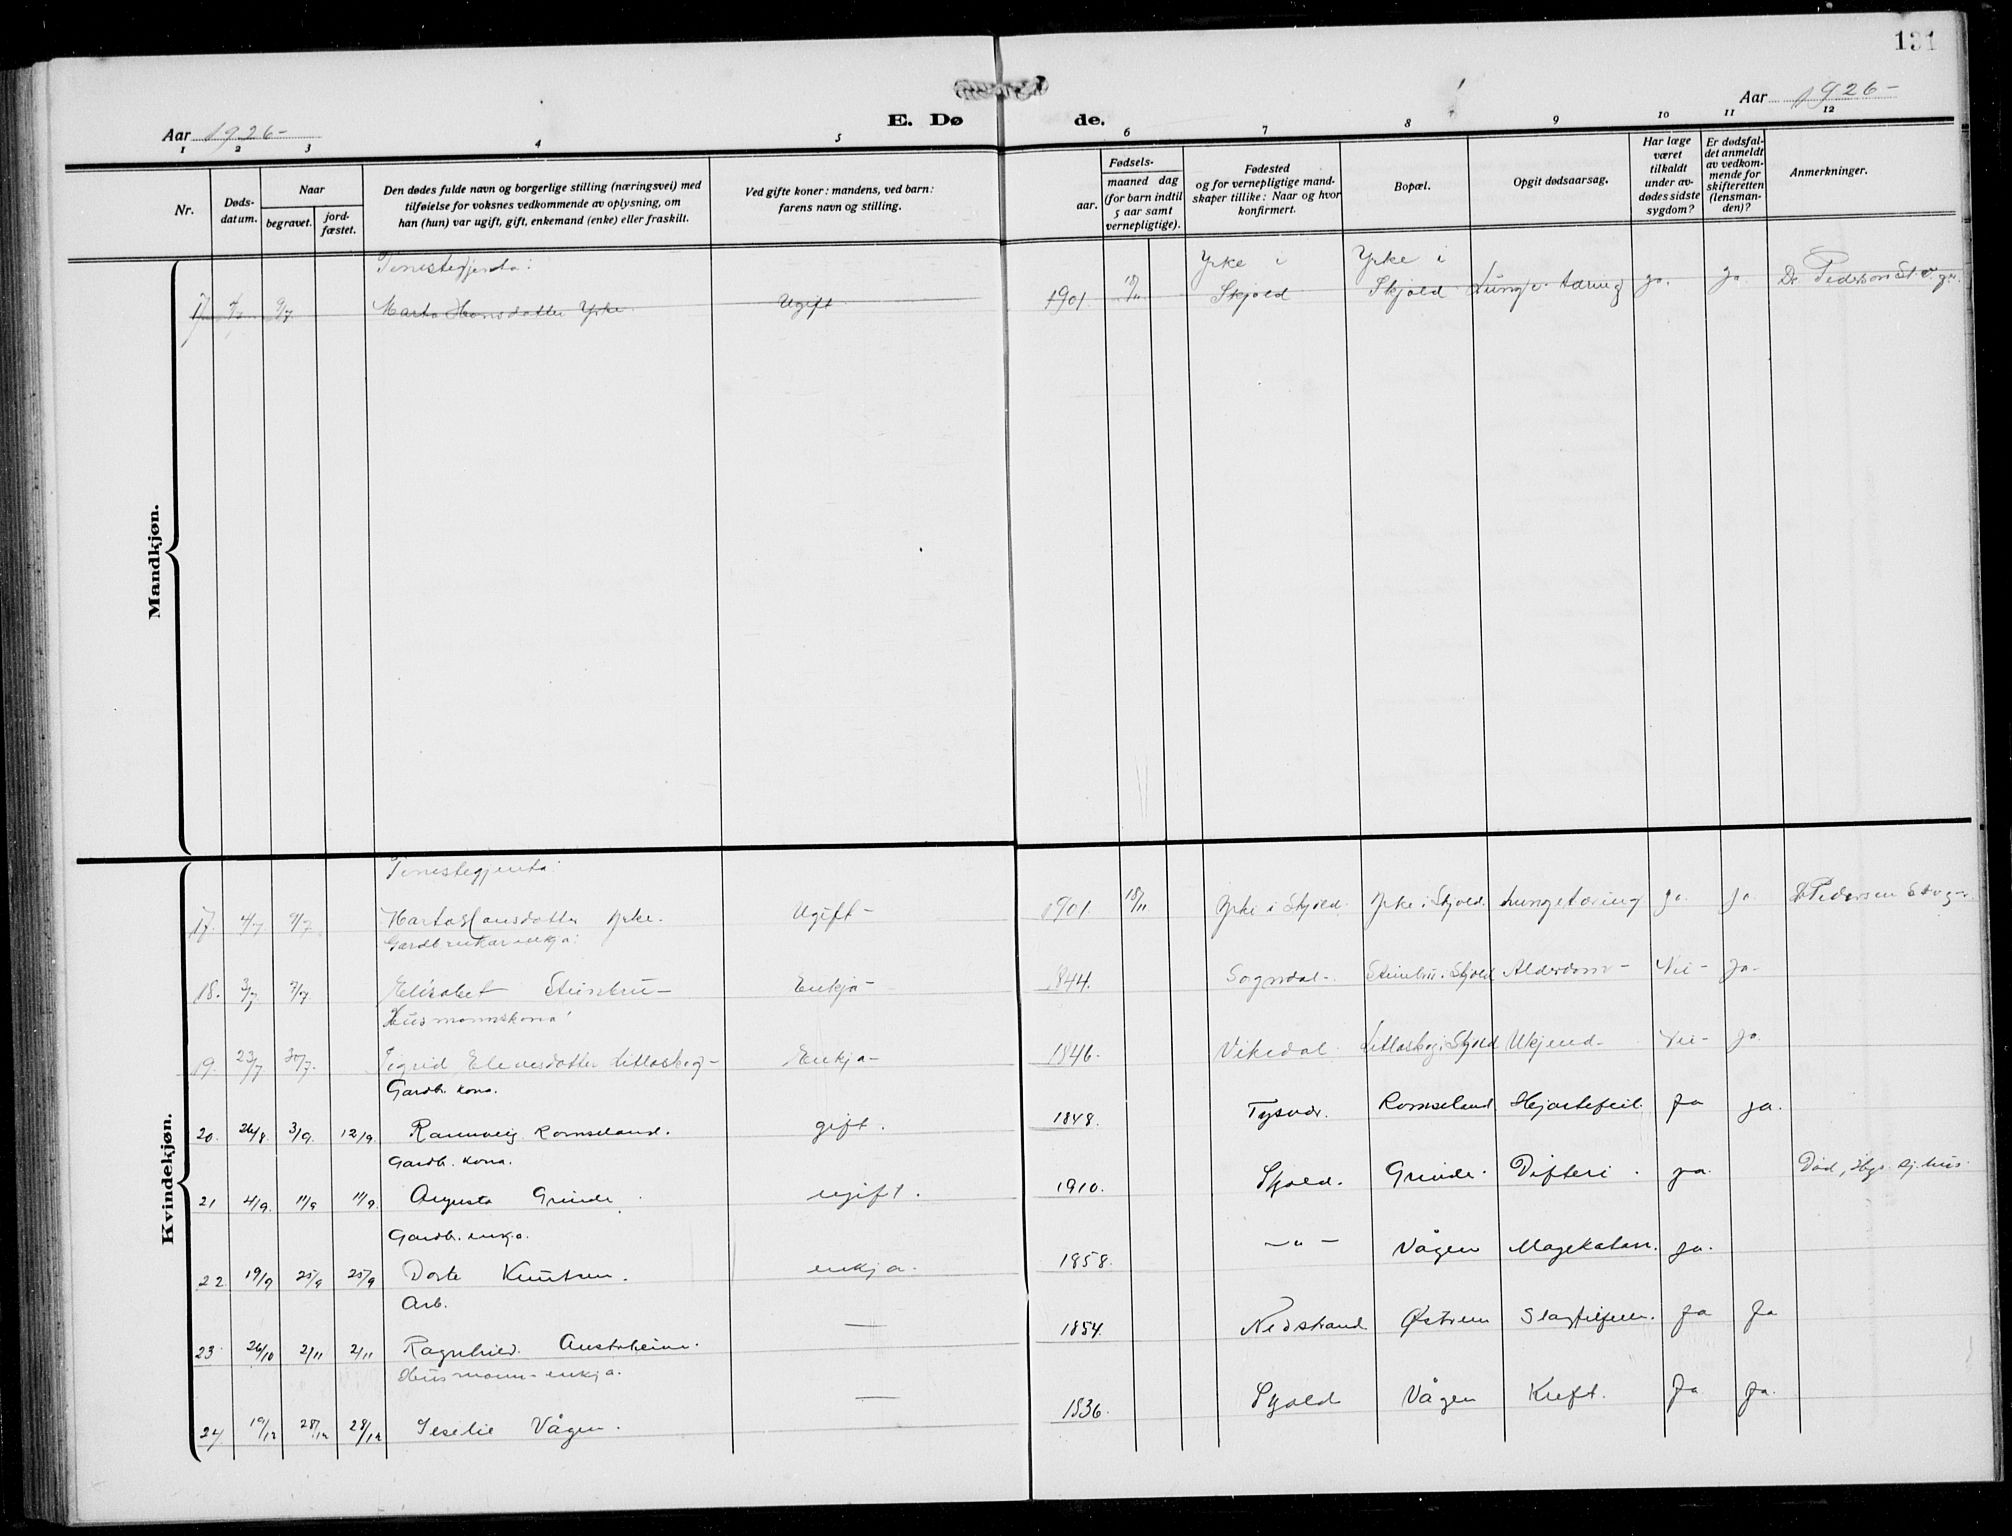 131
Aar 1926-
E. Døde.
Aar 1926-
1 2 3 4 5 6 7 8 9 10 11 12
Nr.
Døds-
datum.
Naar
begravet.
jord-
fæstet.
Den dødes fulde navn og borgerlige stilling (næringsvei) med
tilføielse for voksnes vedkommende av oplysning, om
han (hun) var ugift, gift, enkemand (enke) eller fraskilt.
Ved gifte koner: mandens, ved barn:
farens navn og stilling.
Fødsels-
aar.
maaned dag
(for barn indtil
5 aar samt
vernepligtige).
Fødested
og for vernepligtige mand-
skaper tillike: Naar og hvor
konfirmert.
Bopæl.
Opgit dødsaarsag.
Har læge
været
tilkaldt
under av-
dødes sidste
sygdom?
Er dødsfal-
det anmeldt
av vedkom-
mende for
skifteretten
(lensman-
den)?
Anmerkninger.
Mandkjøn.
Tenestegjenta: Yrke i Yrke i
17 4/7 9/7 Marta Hansdatter Yrke. Ugift 1901. 18/11 Skjold Skjold Lungetæring ja. Ja Dr Pedersen
Kvindekjøn.
Tenestegjenta:
17. 4/7 9/7 Marta Hansdatter Yrke. Ugift- 1901. 18/11. Yrke i Skjold. Yrke i Skjold. Lungetæring Ja. Ja. Dr Pedersen
Gardbrukarenkja:
18. 3/7 9/7 Elisabet Steinbru- Enkja- 1844. Sogndal- Steinbru i Skjold Alderdom- Nei- Ja-
Husmannskona:
19. 23/7 30/7. Sigrid Elevesdotter Litlaskog- Enkja- 1846. Vikedal. Litlaskog i Skjold Ukjend- Nei- Ja.
Gardb. kona.
20. 26/8. 3/9. 12/9. Rannveig Romseland. gift. 1848. Tysvær. Romseland Hjartefeil. Ja ja.
Gardb. kona.
21 4/9. 11/9 11/9. Augusta Grinde. ugift. 1910. Skjold. Grinde. Difteri. ja. Død, Hgs. sj.hus.
Gardb. enkja.
22 19/9 25/9 25/9 Dorte Knutsen. enkja. 1858. -"- Vågen Magekatarr. ja.
Arb.
23 26/10 2/11 2/11 Ragnhild Austraheim. — 1854. Nedstrand Østrem Slagtilfelle. Ja Ja
Husmann-enkja.
24 19/12 28/12 28/12 Seselie Vågen. — 1836. Skjold Vågen Kreft. Ja Ja.